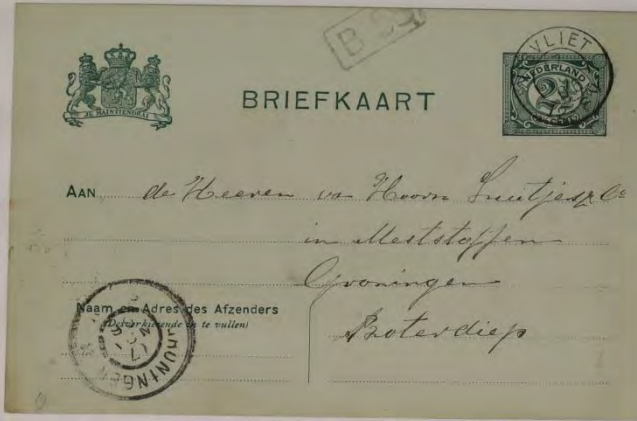 B
VLIET
NEDERLAND
JE MAINTIENDRAI
BRIEFKAART
2½
AAN de Heeren v Hoorn Luitjes & Co
in Meststoffen
Groningen
Naam en Adres des Afzenders
(Desverkiezende in te vullen)
Boterdiep
GRONINGEN